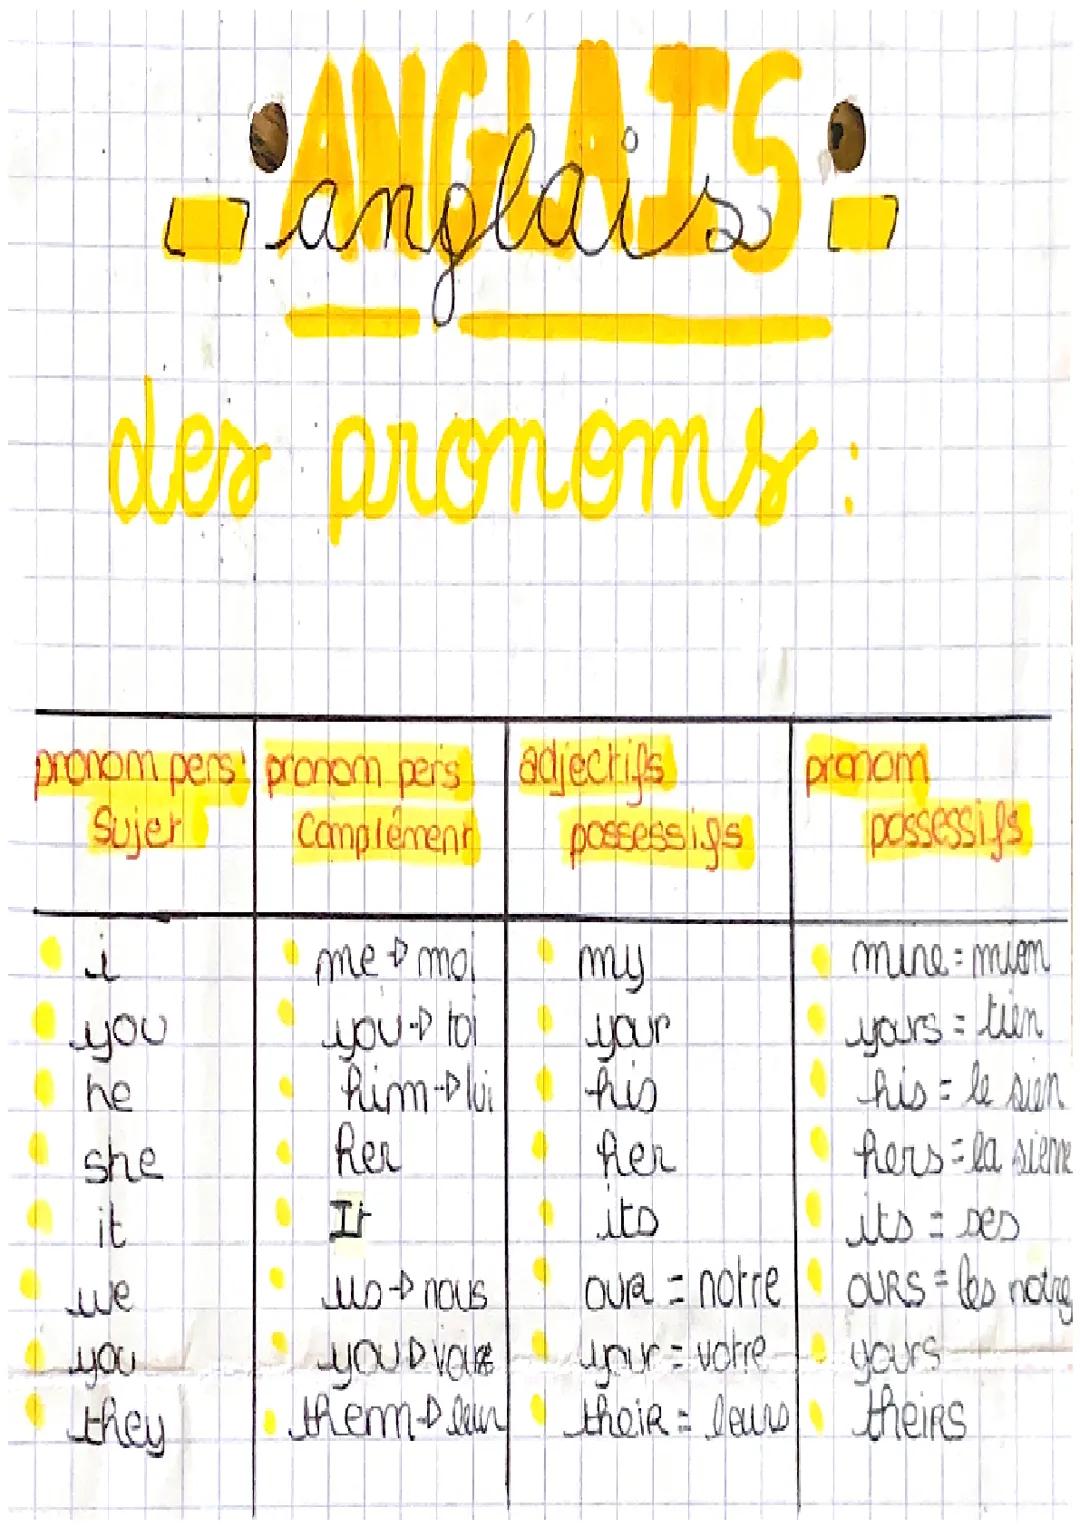 ANGLAIS
anglais
des pronoms :
pronom pers sujet | pronom pers complément | adjectifs possessifs | pronom possessifs
i | me → moi | my | mine = mien
you | you → toi | your | yours = tien
he | him → lui | his | his = le sien
she | her | her | hers = la sienne
it | It | its | its = ses
we | us → nous | our = notre | OURS = les notres
you | you → vous | your = votre | yours
they | them → leur | their = leurs | theirs